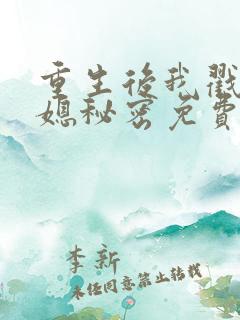 重生后我戳
媳秘密免费
李新
未经同意禁止转载